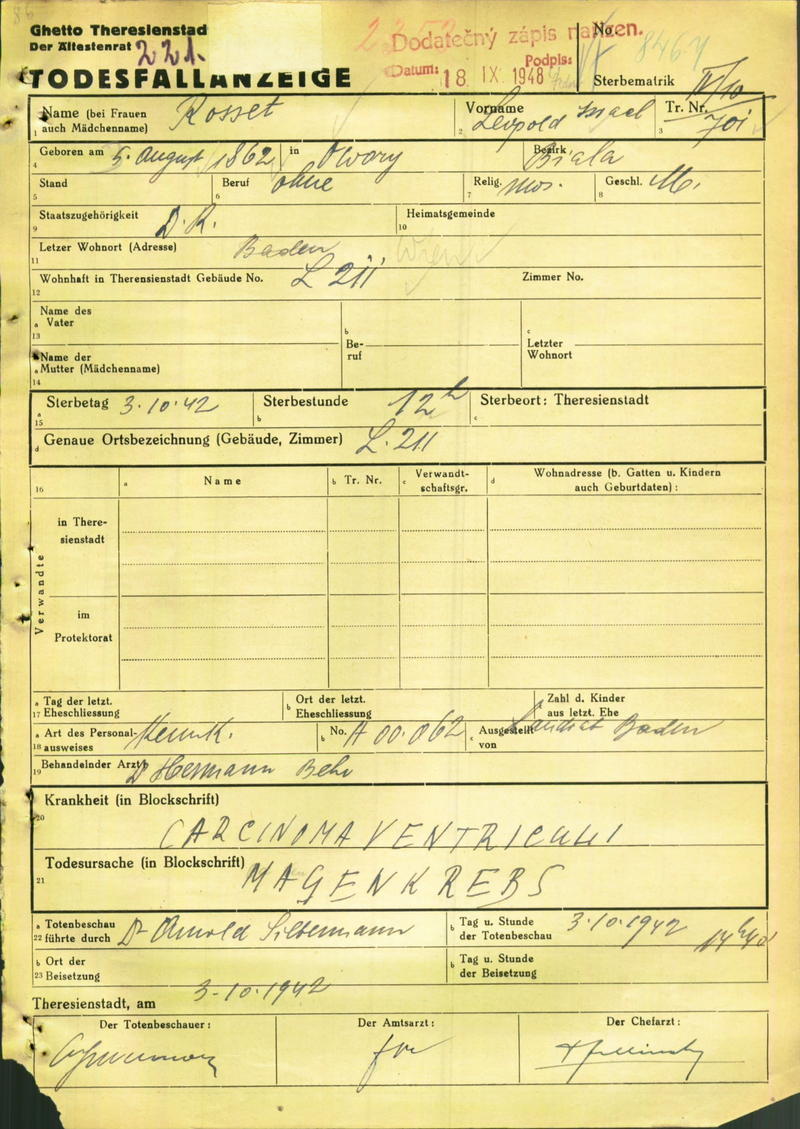 Ghetto Theresienstad No.
Der Ältestenrat 221. Dodatečný zápis nařízen. 8464
Datum: 18 IX. 1948 Podpis:
TODESFALLANZEIGE Sterbematrik IV/10
Name (bei Frauen auch Mädchenname) Rosset Vorname Leopold Israel Tr. Nr. 701
1 2 3
Geboren am 5. August 1862 in Bezirk Biala
4
Stand Beruf ohne Relig. mos. Geschl. M.
5 6 7 8
Staatszugehörigkeit D.R. Heimatsgemeinde
9 10
Letzer Wohnort (Adresse) Baden Wien
11
Wohnhaft in Therensienstadt Gebäude No. L 211 Zimmer No.
12
Name des
a Vater b c
13 Be- Letzter
Name der ruf Wohnort
a Mutter (Mädchenname)
14
a Sterbetag 3.10.42 Sterbestunde 12h Sterbeort: Theresienstadt
15 b c
d Genaue Ortsbezeichnung (Gebäude, Zimmer) L. 211
16 a Name b Tr. Nr. c Verwandt-schaftsgr. d Wohnadresse (b. Gatten u. Kindern auch Geburtdaten) :
Verwandte
in There-
sienstadt
im
Protektorat
a Tag der letzt. b Ort der letzt. Zahl d. Kinder
17 Eheschliessung Eheschliessung c aus letzt. Ehe
a Art des Personal-ausweises Kennk. b No. A 00.062 c Ausgestellt von Landrat Baden
18
19 Behandelnder Arzt Dr Hermann Behr
Krankheit (in Blockschrift)
20
CARCINOMA VENTRICULI
Todesursache (in Blockschrift)
21 MAGENKREBS
a Totenbeschau b Tag u. Stunde
22 führte durch Dr Arnold Silbermann der Totenbeschau 3.10.1942 14h40
b Ort der b Tag u. Stunde
23 Beisetzung der Beisetzung
Theresienstadt, am 3.10.1942
Der Totenbeschauer : Der Amtsarzt : Der Chefarzt :